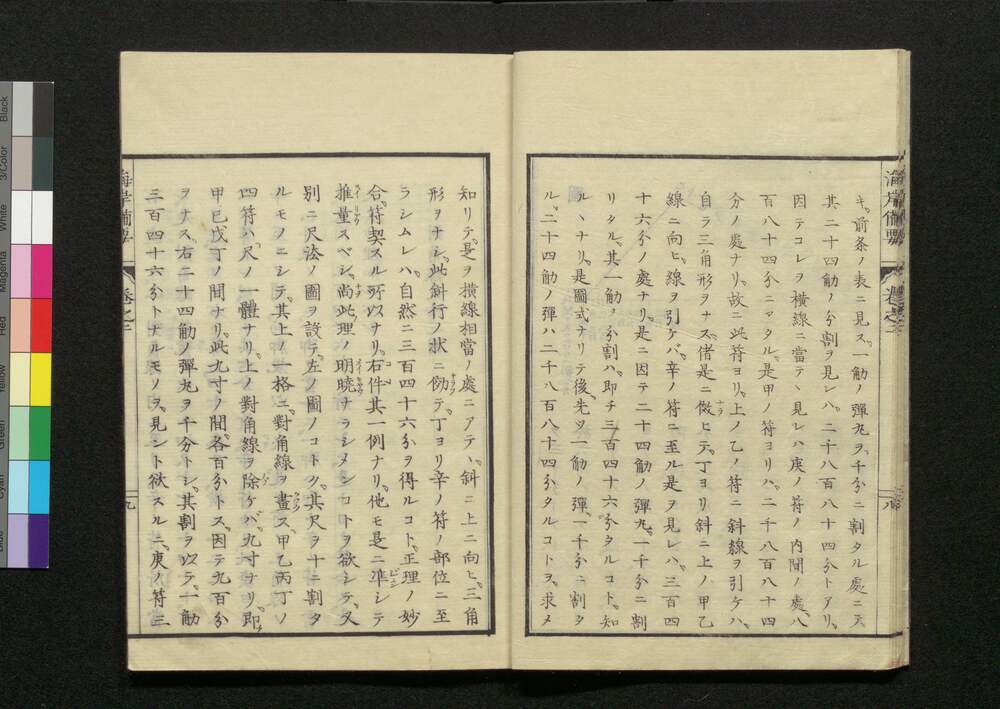 キ。前条ノ表ニ見ス。一觔ノ彈丸ヲ。千分ニ割タル處ニ天
其二十四觔ノ分割ヲ見レハ。二千八百八十四分トアリ。
因テコレヲ横線ニ當テヽ見レハ庚ノ符ノ内間ノ處。八
百八十四分ニアタル。是甲ノ符ヨリハ。二千八百八十四
分ノ處ナリ。故ニ此符ヨリ。上ノ乙ノ符ニ斜線ヲ引ケハ。
自ラ三角形ヲナス。偖是ニ倣ヒテ。丁ヨリ斜ニ上ノ甲乙
線ニ向ヒ。線ヲ引ケバ。辛ノ符ニ至ル是ヲ見レハ。三百四
十六分ノ處ナリ。是ニ因テ二十四觔ノ彈丸。一千分ニ割
リタル。其一觔ノ分割ハ。即チ三百四十六分タルコト。知
ルヽナリ。是圖式ナリテ後。先ツ一觔ノ彈。一千分ニ割タ
ル。二十四觔ノ彈ハ二千八百八十四分タルコトヲ。求メ
海岸備要
八
知リテ。是ヲ横線相當ノ處ニアテハ。斜ニ上ニ向ヒ。三角
形ヲナシ。此斜行ノ状ニ傚テ。丁ヨリ辛ノ符ノ部位ニ至
ラシムレハ。自然ニ三百四十六分ヲ得ルコト。正理ノ妙
合。符契スル所以ナリ。右件其一例ナリ。他モ是ニ準シテ
推量スベシ。尚此理ノ明曉ナラシメンコトヲ欲シテ。又
別ニ尺法ノ圖ヲ設テ。左ノ圖ノコトク。其尺ヲ十ニ割タ
ルモノニシテ。其上ノ一格ニ。對角線ヲ畫ス。甲乙丙丁ノ
四符ハ。尺ノ一體ナリ。上ノ對角線ヲ除ケバ。九寸ヲリ。即
甲已戊丁ノ間ナリ。此九寸ノ間。各百分トス。因テ九百分
ヲナス。右二十四觔ノ彈丸ヲ千分トシ。其割ヲ以テ。一觔
三百四十六分トナルモノヲ。見ント欲スルニ。庚ノ符三
海岸備要
卷之三
九